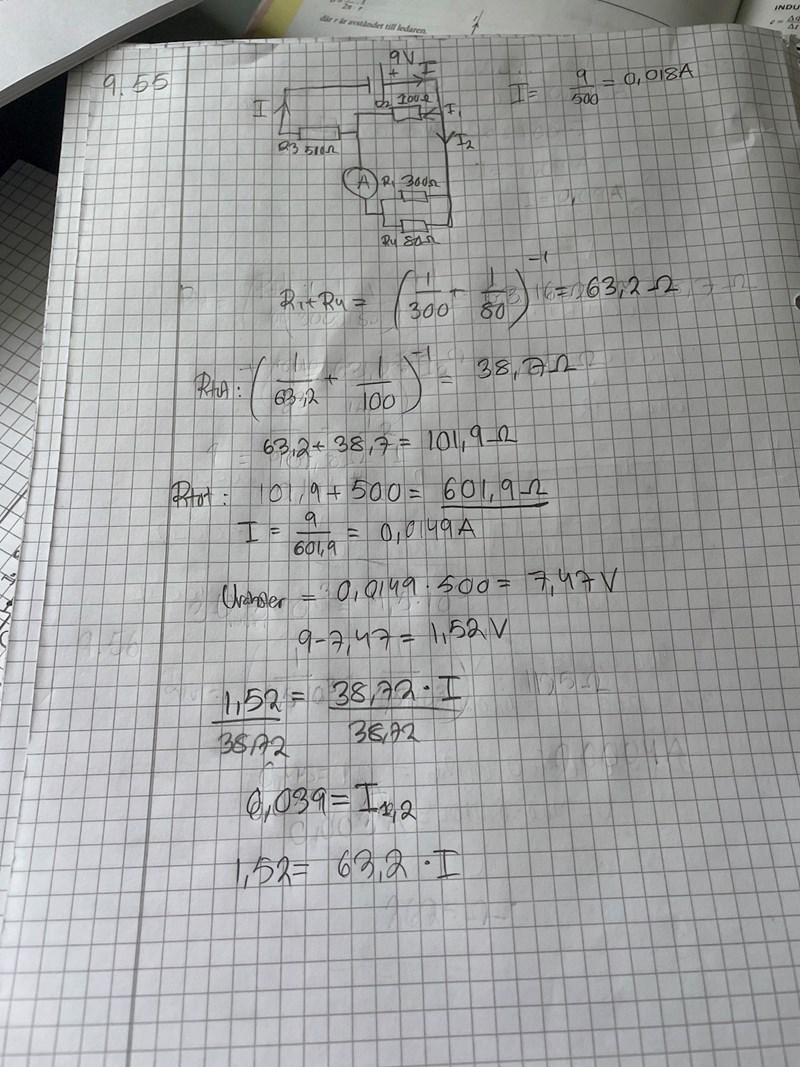 där r är avståndet till ledaren.
INDU
9.55
9V
+ I
I = 9/500 = 0,018A
I
R2 100Ω
I₁
R3 500Ω
I₂
A
R₁ 300Ω
R4 80Ω
R₁+R4 = (1/300 + 1/80)⁻¹ = 63,2Ω
Rtot: (1/63,2 + 1/100)⁻¹ = 38,7Ω
63,2 + 38,7 = 101,9Ω
Rtot: 101,9 + 500 = 601,9Ω
I = 9/601,9 = 0,0149A
= 0,0149 · 500 = 7,47V
9 - 7,47 = 1,52V
1,52/38,72 = 38,72 · I/38,72
0,039 = I₁,₂
1,52 = 63,2 · I